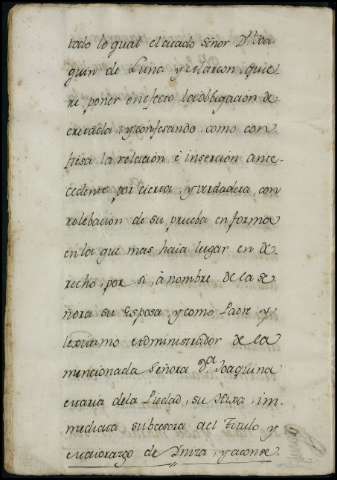 todo lo qual el citado Señor Dn. Joa
quin de Luna y Alarcon, quie
re poner en efecto la obligacion de
cretada, y confesando, como con
fiesa la relacion è insercion ante-
cedente por cierta, y verdadera, con
relebacion de su prueba en forma
en la que mas haia lugar en de
recho, por si, à nombre de la Se
ñora su Esposa, y como Padre y
lexitimo Administrador de la
mencionada Señora Da. Joaquina
Maria de la Piedad, su Hixa, im-
mediata subcesora del Titulo y
Maiorazgo de y